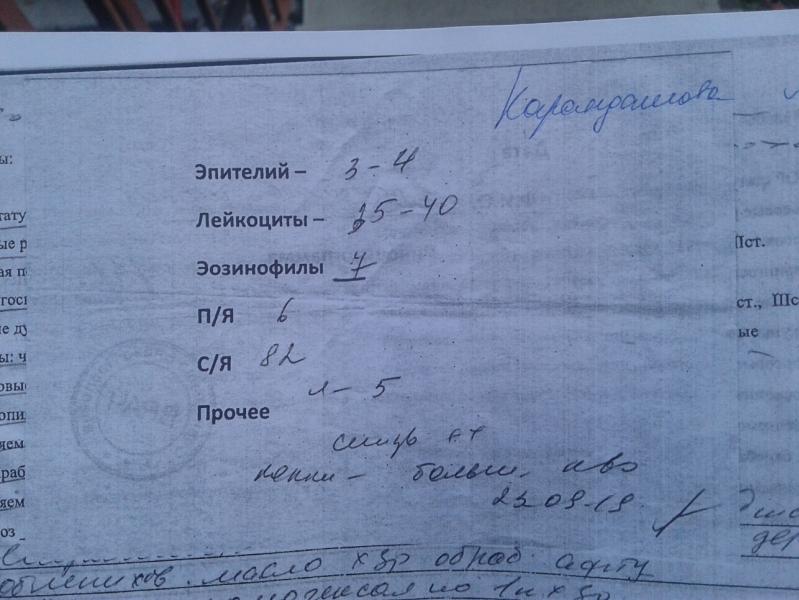 Карандашова
Эпителий – 3-4
Лейкоциты – 35-40
Эозинофилы 7
П/Я 6
С/Я 82
л - 5
Прочее
слизь ++
кокки - больш. к-во
23.09.19
ы:
тату
ые р
ая п
гост
е ду
ы: ч
овые
опи
яем
раб
яем
оз
Пст.
ст., Шс
ые
дер
масло х 3р обраб. афту
по 1к х 3р